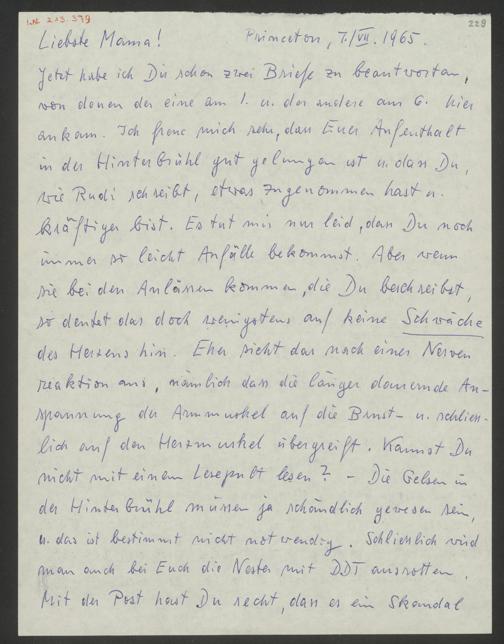 229
Liebste Mama! Princeton, 7./VII. 1965.
Jetzt habe ich Dir schon zwei Briefe zu beantworten,
von denen der eine am 1. u. der andere am 6. hier
ankam. Ich freue mich sehr, dass Euer Aufenthalt
in der Hinterbrühl gut gelungen ist u. dass Du,
wie Rudi schreibt, etwas zugenommen hast u.
kräftiger bist. Es tut mir nur leid, dass Du noch
immer so leicht Anfälle bekommst. Aber wenn
sie bei den Anlässen kommen, die Du beschreibst,
so deutet das doch wenigstens auf keine Schwäche
des Herzens hin. Eher sieht das nach einer Nerven
reaktion aus, nämlich dass die länger dauernde An-
spannung der Armmuskel auf die Brust- u. schliess-
lich auf den Herzmuskel übergreift. Kannst Du
nicht mit einem Lesepult lesen? – Die Gelsen in
der Hinterbrühl müssen ja schändlich gewesen sein,
u. das ist bestimmt nicht notwendig. Schliesslich wird
man auch bei Euch die Nester mit DDT ausrotten.
Mit der Post hast Du recht, dass es ein Skandal